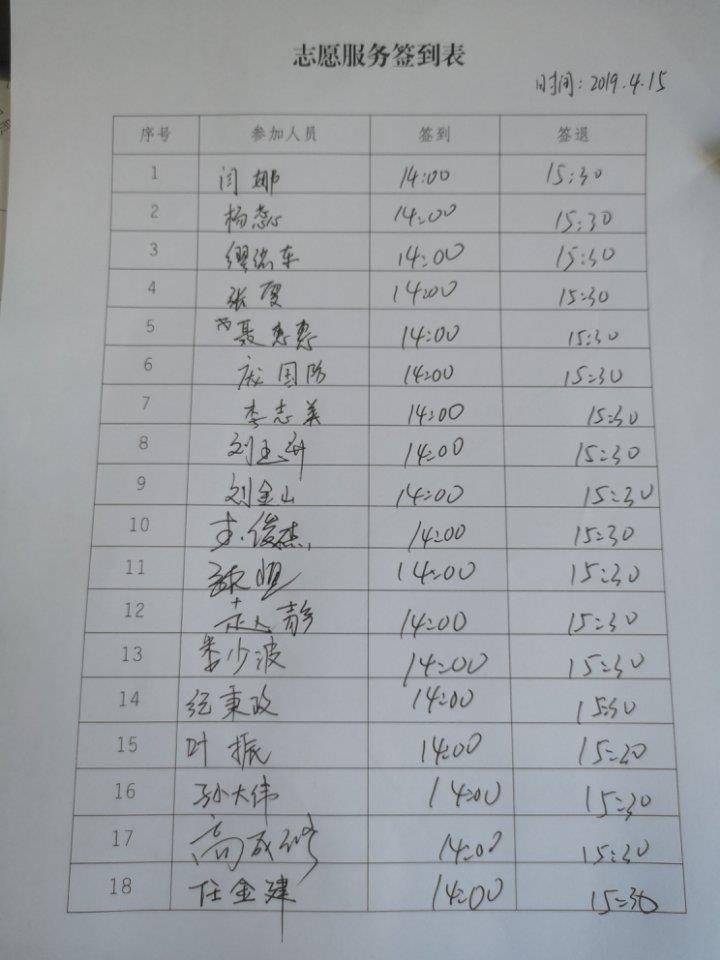 志愿服务签到表
时间：2019.4.15
序号 参加人员 签到 签退
1 闫娜 14:00 15:30
2 杨蕊 14:00 15:30
3 缪瑞车 14:00 15:30
4 张 14:00 15:30
5 聂惠惠 14:00 15:30
6 庞国防 14:00 15:30
7 李志美 14:00 15:30
8 刘玉 14:00 15:30
9 刘金山 14:00 15:30
10 俊杰 14:00 15:30
11 14:00 15:30
12 赵静 14:00 15:30
13 李少波 14:00 15:30
14 纪秉政 14:00 15:30
15 叶振 14:00 15:20
16 孙大伟 14:00 15:30
17 高成 14:00 15:30
18 任金建 14:00 15:30